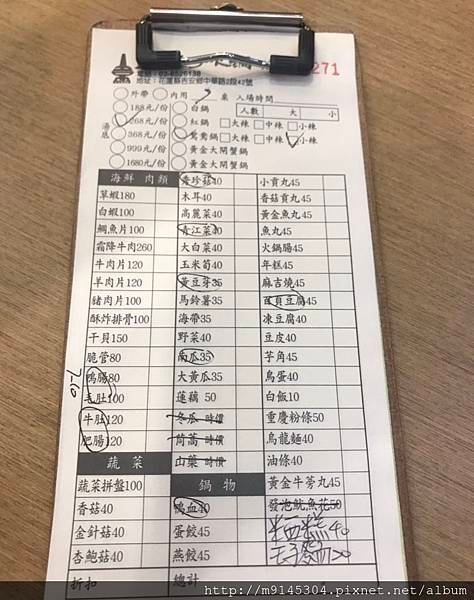 271
電話：03-8526138
地址：花蓮縣吉安鄉中華路2段42號
外帶 內用 桌 入場時間
湯底
188元/份 白鍋 人數 大 小
268元/份 紅鍋 大辣 中辣 小辣
368元/份 鴛鴦鍋 大辣 中辣 小辣
999元/份 黃金大閘蟹鍋
1680元/份 黃金大閘蟹鍋
海鮮 肉類 秀珍菇40 小貢丸45
草蝦180 木耳40 香菇貢丸45
白蝦100 高麗菜40 黃金魚丸45
鯛魚片100 青江菜40 魚丸45
霜降牛肉260 大白菜40 火鍋腸45
牛肉片120 玉米筍40 年糕45
羊肉片120 黃豆芽35 麻古燒45
豬肉片100 馬鈴薯35 百頁豆腐45
酥炸排骨100 海帶35 凍豆腐40
干貝150 野菜40 豆皮40
脆管80 南瓜35 芋角45
鴨腸80 大黃瓜35 鳥蛋40
毛肚100 蓮藕 50 白飯10
牛肚120 冬瓜 時價 重慶粉條50
肥腸120 茼蒿 時價 烏龍麵40
蔬菜 山藥 時價 油條40
蔬菜拼盤100 鍋物 黃金牛蒡丸45
香菇40 鴨血40 發泡魷魚花50
金針菇40 蛋餃45 米糕40
杏鮑菇40 燕餃45
折扣 總計
7-10
http://m9145304.pixnet.net/album